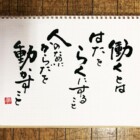 働くとは
はたを
らくにする
こと
人のために
からだを
動かすこと